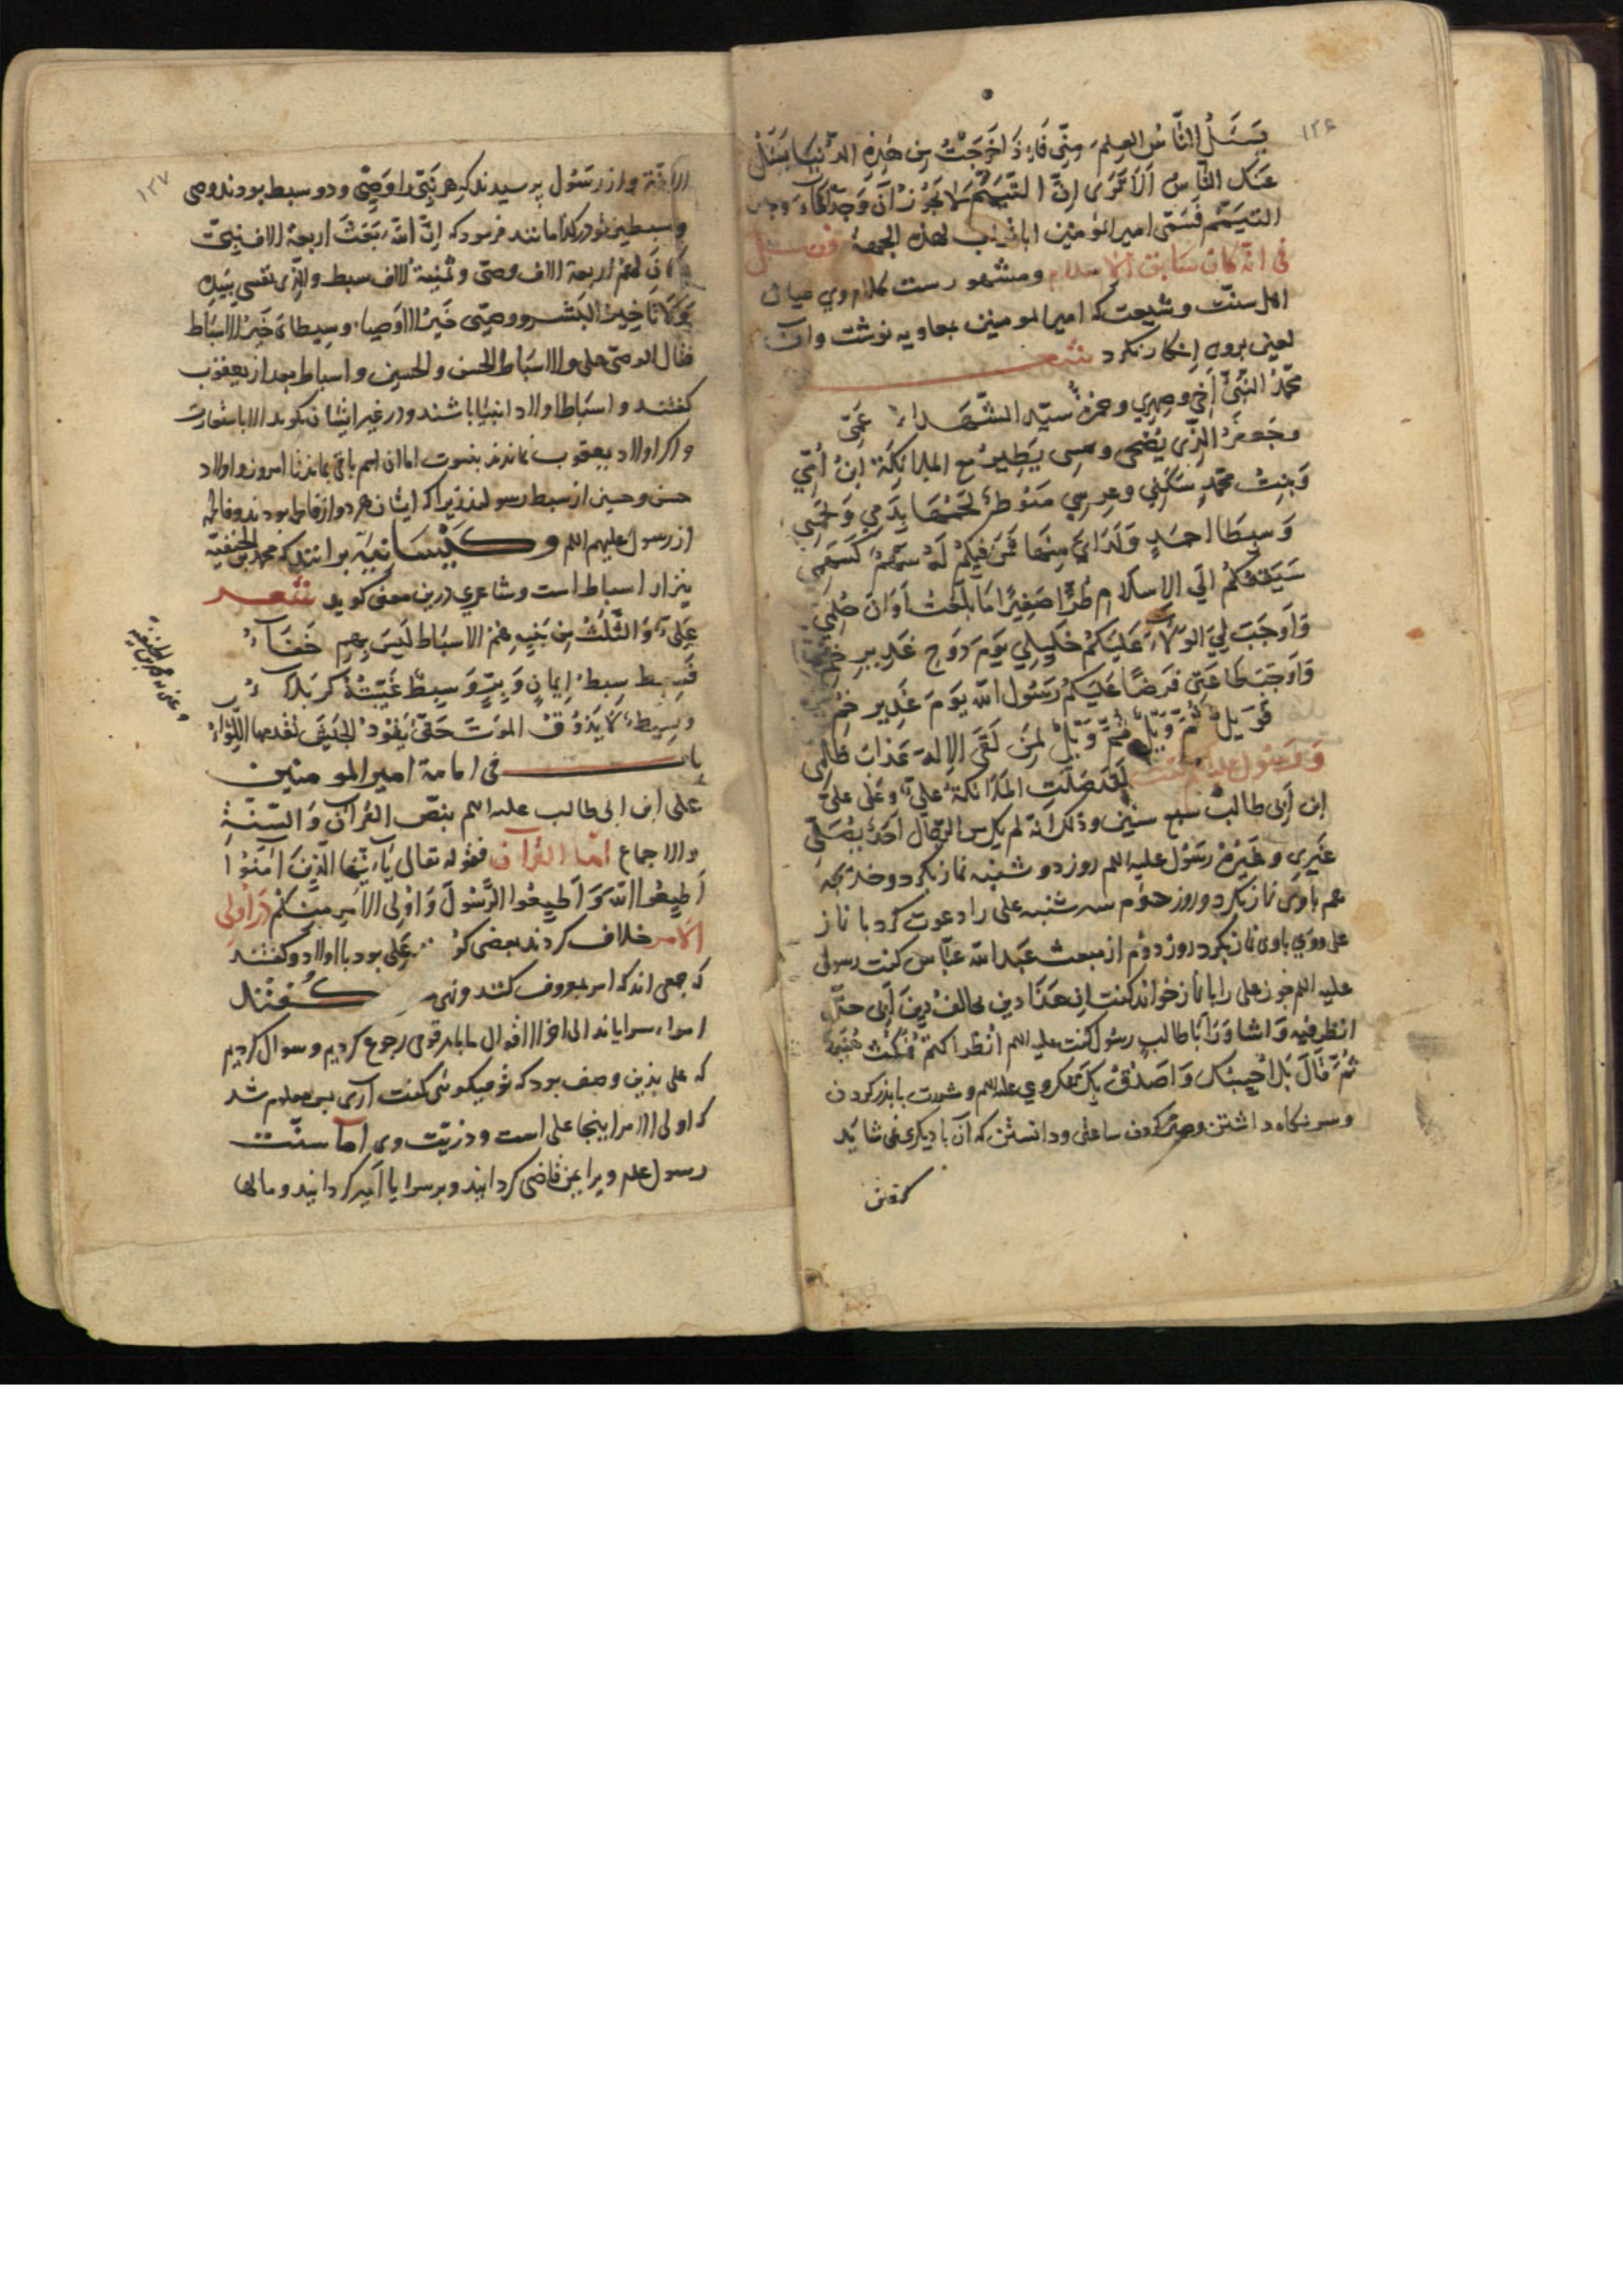 ۱۲۶
يَسْئَلُ النَّاسُ العِلْمَ مِنّى فَاِذَا خَرَجَتُ مِن هٰذِهِ الدّنْيَا يَسْئَلُ
عَنكَ النَّاسُ اَلَا تَرَى اِنَّ التَّيَمُّمَ لَا يَجُوزُ اَن وَجَد
التيَمّم فَسَمّى امير المؤمنين ابا تراب لهذه الجهة
فى انّه كان سَابق الاسلام ومشهورست كلام وى ميان
اهل سنّت و شيعت كه امير المومنين بمعاويه نوشت وان
لعين بروى اِنكار نكرد شعر
مُحمَّدُ النَّبِىُّ اَخِي وصِهرِي وحمزةُ سيّد الشّهداء عَمّى
وجَعفَرُ الذّى يُضحى ومسى يَطِيرُ مع الملائكة ابنُ اُمّي
وَبِنتُ محمّدٍ سَكَنِي وعِرسِي مَنُوطٌ لَحمُها بِدَمِي وَلَحمِي
وَسِبطَا احمدٍ وَلَدايَ مِنهَا فَمَن فيكُم لَهُ سَهمٌ كَسَهمِي
سَبَقتُكُم اِلَى الاِسلامِ طُرًّا صَغِيرًا مَا بَلَغتُ اَوَانَ حُلمِي
وَاَوجَبَ لِيَ الوَلَاءَ عَلَيكُم خَلِيلِي يَومَ دَوحِ غَدِيرِ خُمّ
وَاَوجَبَ طَاعَتِى فَرضًا عَلَيكُم رَسُول اللّه يَومَ غَدِيرِ خُم
فَوَيلٌ ثُمَّ وَيلٌ ثُمَّ وَيلٌ لِمَن لَقَى الاِلهَ غَدًا بِظُلمِى
وَرسول عليه گفت لَقَد صَلَّتِ المَلَائكةُ عَلَيَّ وعَلى علىّ
ابن اَبى طالب سبع سنين وذلك انّه لم يكن من الرّجال اَحدٌ يصلّى
غَيرِي وغَيرُه رَسُول عليه السلم روز دوشنبه نماز بكرد و خديجه
هم باوى نماز بكرد و روز سوم سه شنبه على را دعوت كرد با نماز
على ووى باوى نماز بكرد روز دوّم از مبعث عبد اللّه عبّاس گفت رسول
عليه السلم چون على را با نماز خواند گفت اِن هَذَا دين يخالفُ دِينَ اَبِى حتّى
انظر فيه وَاشاوِرَ اَبَا طالب رسُول گفت عليه السلم اُنظُر وَاكتُم فَمَكَثَ هُنَيئَة
ثُمَّ قَالَ بَل اُجِيبُك وَاُصَدّقُ بِك تفكر وي عليه السلم و مشورت با پدر كردن
و سر نگاه داشتن و صبر كردن ساعتى و دانستن كه آن با ديگرى نمى شايد
گفتن
۱۲۷
و از رسُول پرسيدند كه هر نَبىّ را وَصِىّ و دو سبط بودند وصى
و سبطين تو كدامانند فرمود كه اِنَّ اللّهَ بَعَثَ اربعة الاف نبىّ
كَانَ لهُم اربعة الاف وصىّ و ثمنية الاف سبط والذى نفسى بيَدِه
لَاَنَا خيرُ البَشَر ووصيّى خَيرُ الاوصياء وسبطاىَ خَيرُ الاسبَاط
فقال الوصىّ على والاسبَاط الحسن والحسين واسباط بعد از يعقوب
گفتند و اسبَاط اولاد انبيَا باشند و در غير ايشان نگويد الا باستعارت
و اگر اولاد يعقوب نماندند بنبوت اما ان اسم باقى بماند تا امروز و اولاد
حسن و حسين از سبط رسولند زيرا كه ايشان هر دو از فاطمه بودند و فاطمه
از رسول عليهم السلم و كَيسَانيَه برانند كه محمد بن الحنفيّه
نيز از اسباط است و شاعري درين معنى گويد شعر
عَلِىٌّ وَالثّلثُ مِن بَنِيهِ هُمُ الاسبَاط لَيسَ بِهِم خَفَاءُ
فَسِبطٌ سِبطُ اِيمانٍ وَبِرٍّ وَسِبطٌ غَيّبَتهُ كَربَلَاءُ
وسِبطٌ لَا يَذوُقُ المَوتَ حَتّى يَقُودَ الجَيشَ تقدمها اللِوَاءُ
باب فى امامة امير المومنين
على ابن ابى طالب عليه السلم بنصّ القرآن وَالسّنّةِ
والاجماع امّا القرآن فقوله تعالى يَا اَيُّهَا الّذِينَ اٰمَنُوا
اَطِيعُوا اللّهَ وَاَطِيعُوا الرَّسُولَ وَاُولِى الاَمرِ مِنكُم در اُولِى
الاَمر خلاف كردند بعضى گو على بود با اولاد و گفتند
كه جمعى اند كه امر بمعروف كنند و نهى گفتند
امراء سرايا اند الى اخر الاقوال ما با هر قومى رجوع كرديم و سوال كرديم
كه على بدين وصف بود كه تو ميگوئى گفت آرى پس معلوم شد
كه اولى الامر اينجا على است و ذرّيّت وى امّا سنّت
رسول علم ويرا بيمن قاضى گردانيد و بر سرايا امير گردانيد و مالها